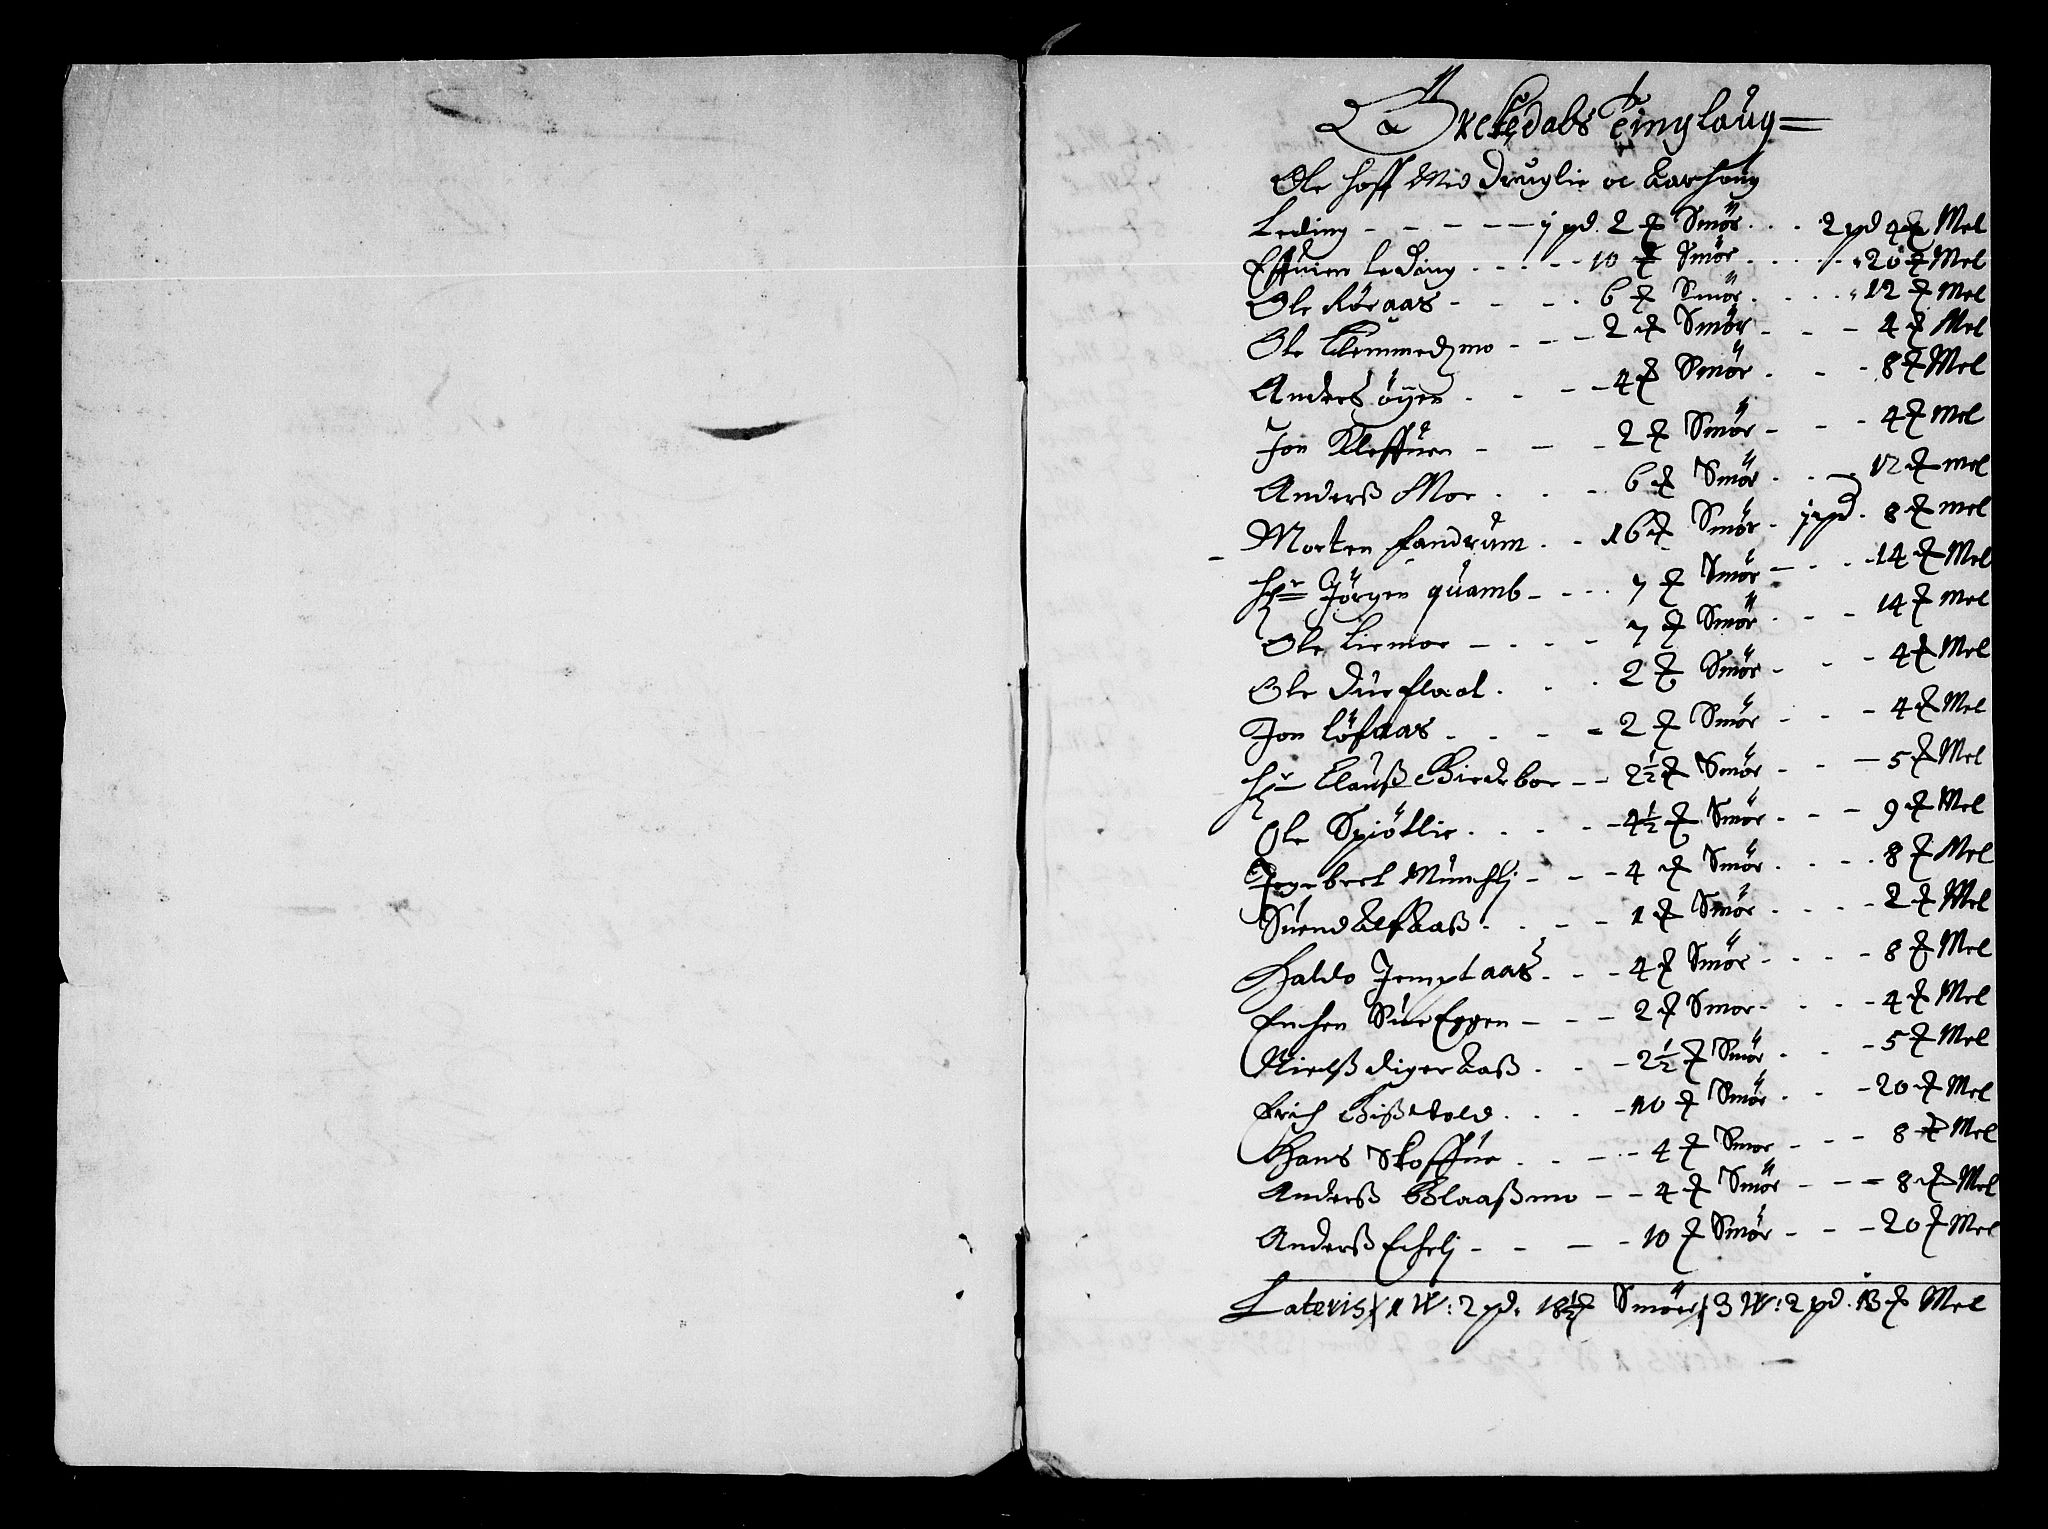 Orckedahls Tinglaug
Ole Hoff Med Druglie oc Aarhoug
Leding - - - - - 1 pd. 2 ℔ Smör . . . 2 pd 4 ℔ Mel
Effuien Leding . . . . . 10 ℔ Smör . . . . . 20 ℔ Mel
Ole Röraas - - - . 6 ℔ Smör . . . . 12 ℔ Mel
Ole Klemmedzmo - - - 2 ℔ Smör - - - 4 ℔ Mel
Anders öyen . - - - 4 ℔ Smör . - - 8 ℔ Mel
Jon Kleffuen - - - 2 ℔ Smör - - - 4 ℔ Mel
Anderß Moe . . . 6 ℔ Smör . . - 12 ℔ mel
Morten fandrům . . 16 ℔ Smör . 1 pd . 8 ℔ mel
Hr Jörgen quamb - - . . 7 ℔ Smör - . . . 14 ℔ Mel
Ole Liemoe - . . - 7 ℔ Smör . - . - 14 ℔ Mel
Ole Dueflaat . . . 2 ℔ Smör - - - 4 ℔ Mel
Jon Löfaas . - - - 2 ℔ Smör - - - 4 ℔ Mel
Hr Clauß Birdeboe - - 2½ ℔ Smör - - - 5 ℔ Mel
Ole Spiötlie . . . - - 4½ ℔ Smör - - - 9 ℔ Mel
Ingebret Munchlj - - - 4 ℔ Smör . . . . 8 ℔ Mel
Suend Alfaaß . . - - 1 ℔ Smör . . . - 2 ℔ Mel
Haldo Jemptaas . - - 4 ℔ Smör - - - - 8 ℔ Mel
Enchen SueEggen - - - 2 ℔ Smor - . . . - 4 ℔ Mel
Nielß digeraaß . . . - 2½ ℔ Smör . . - 5 ℔ Mel
Erich Bißetold . . . - 10 ℔ Smör . . . - 20 ℔ Mel
Hans Skoffue . . - - - 4 ℔ Smor - - - 8 ℔ Mel
Anderß Blaaßmo - - 4 ℔ Smör - - - 8 ℔ Mel
Anderß Echelj - - - - 10 ℔ Smör - - - 20 ℔ Mel
Lateris 1 W: 2 pd. 18½ ℔ Smöer 3 W: 2 pd. 13 ℔ Mel